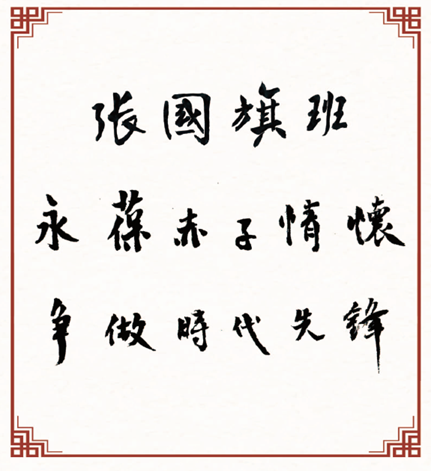 張國旗班
永葆赤子情懷
争做時代先鋒